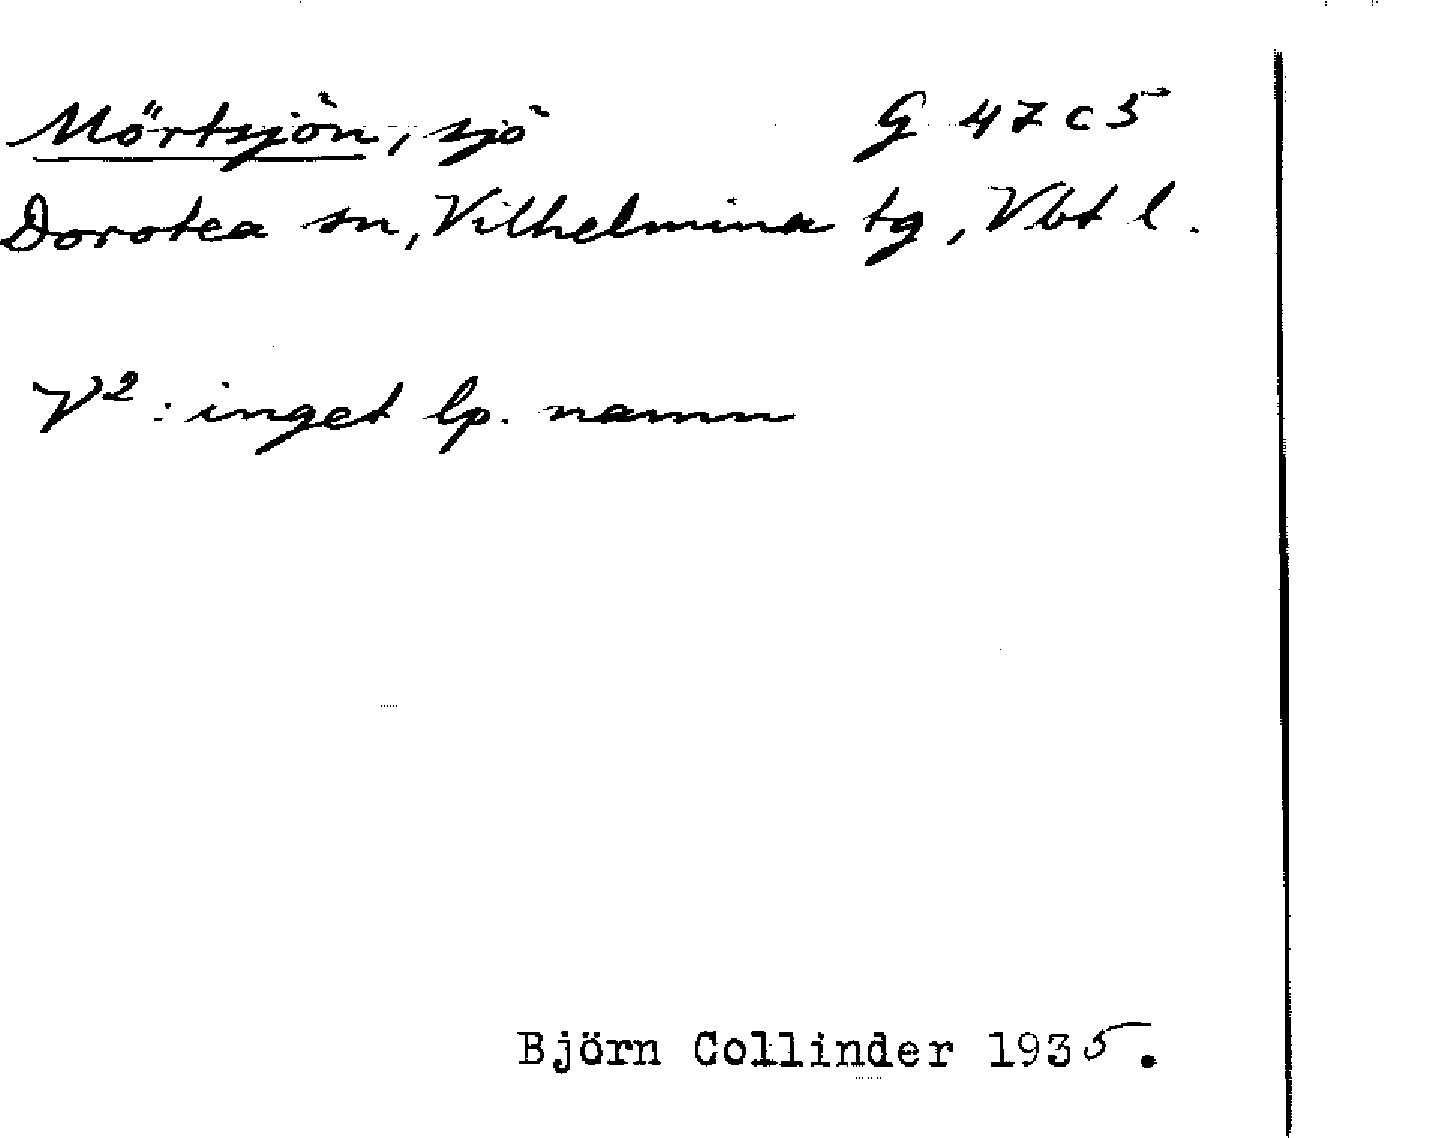 Mörtsjön, sjö G 47 c 5
Dorotea sn, Vilhelmina tg, Vbt l.
V²: inget lp. namn
Björn Collinder 1935.